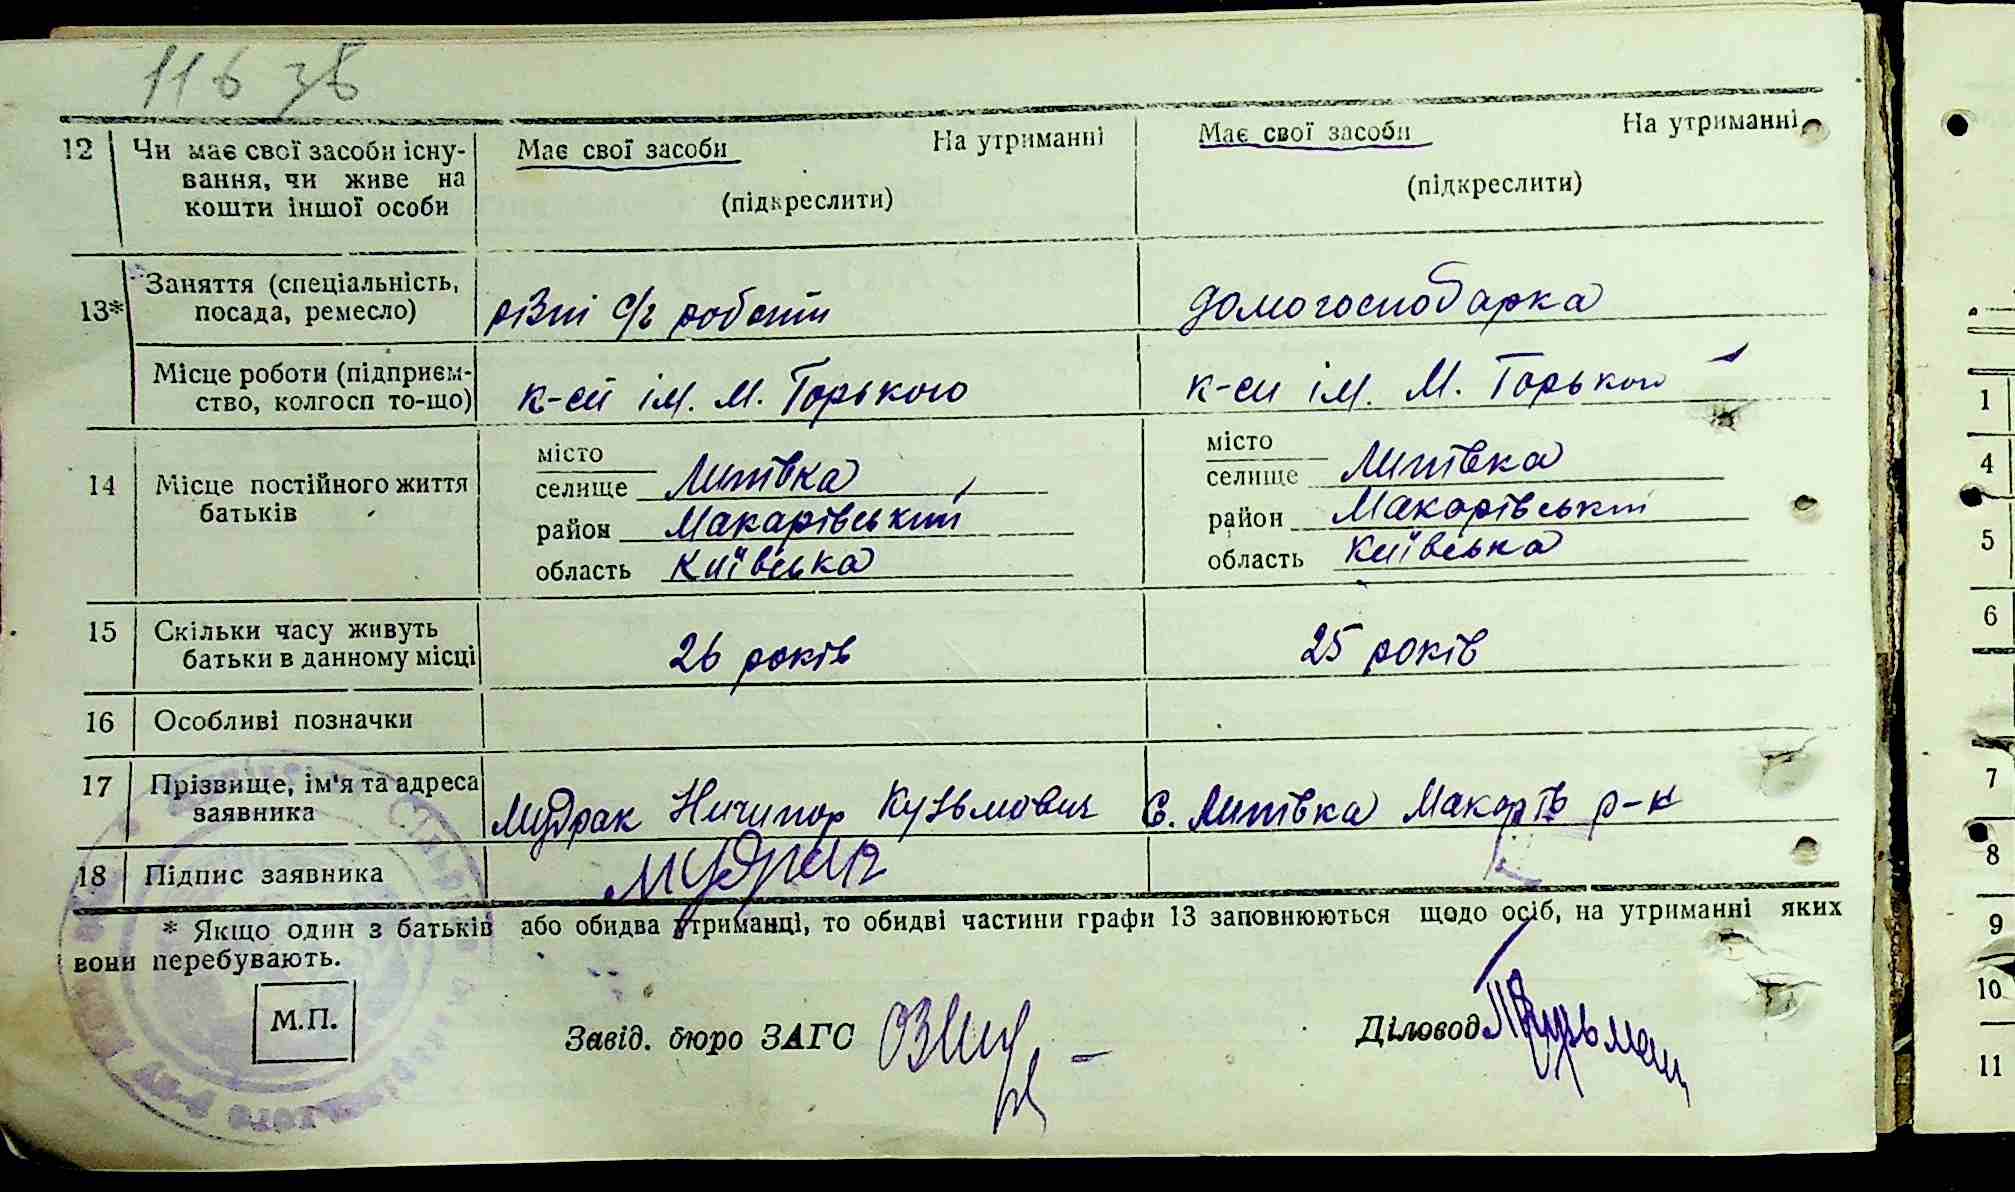 116 зв
12 Чи має свої засоби існу- Має свої засоби На утриманні Має свої засоби На утриманні
вання, чи живе на
кошти іншої особи (підкреслити) (підкреслити)
13* Заняття (спеціальність,
посада, ремесло) різні с/г роботи домогосподарка
Місце роботи (підприєм-
ство, колгосп то-що) к-сп ім. М. Горького к-сп ім. М. Горького
14 Місце постійного життя
батьків
місто місто
селище Липівка селище Липівка
район Макарівський район Макарівський
область Київська область Київська
15 Скільки часу живуть
батьки в данному місці 26 років 25 років
16 Особливі позначки
17 Прізвище, ім'я та адреса
заявника Мудрак Ничипор Кузьмович С. Липівка Макарів р-н
18 Підпис заявника Мудрак
* Якщо один з батьків або обидва утриманці, то обидві частини графи 13 заповнюються щодо осіб, на утриманні яких
вони перебувають.
М.П.
Завід. бюро ЗАГС Діловод
1
4
5
6
7
8
9
10
11